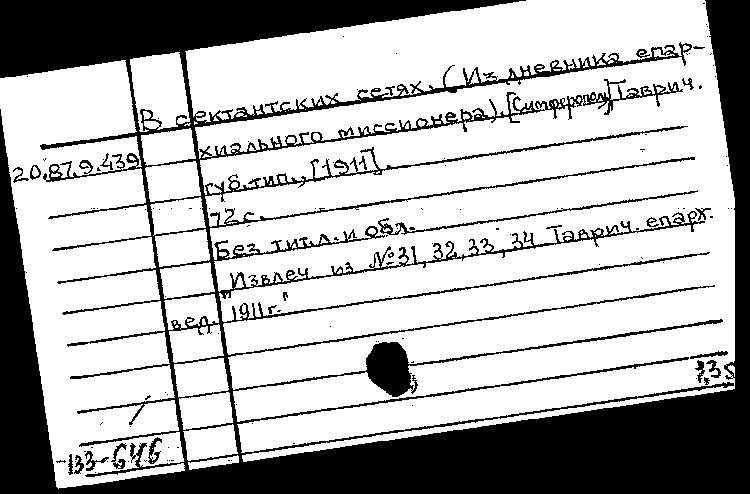 В сектантских сетях. (Из дневника епар-
хиального миссионера). [Симферополь] Таврич.
20.87.9.439
губ. тип., [1911].
72 с.
Без тит. л. и обл.
"Извлеч. из №31, 32, 33, 34 Таврич. епарх.
вед. 1911 г."
133-646